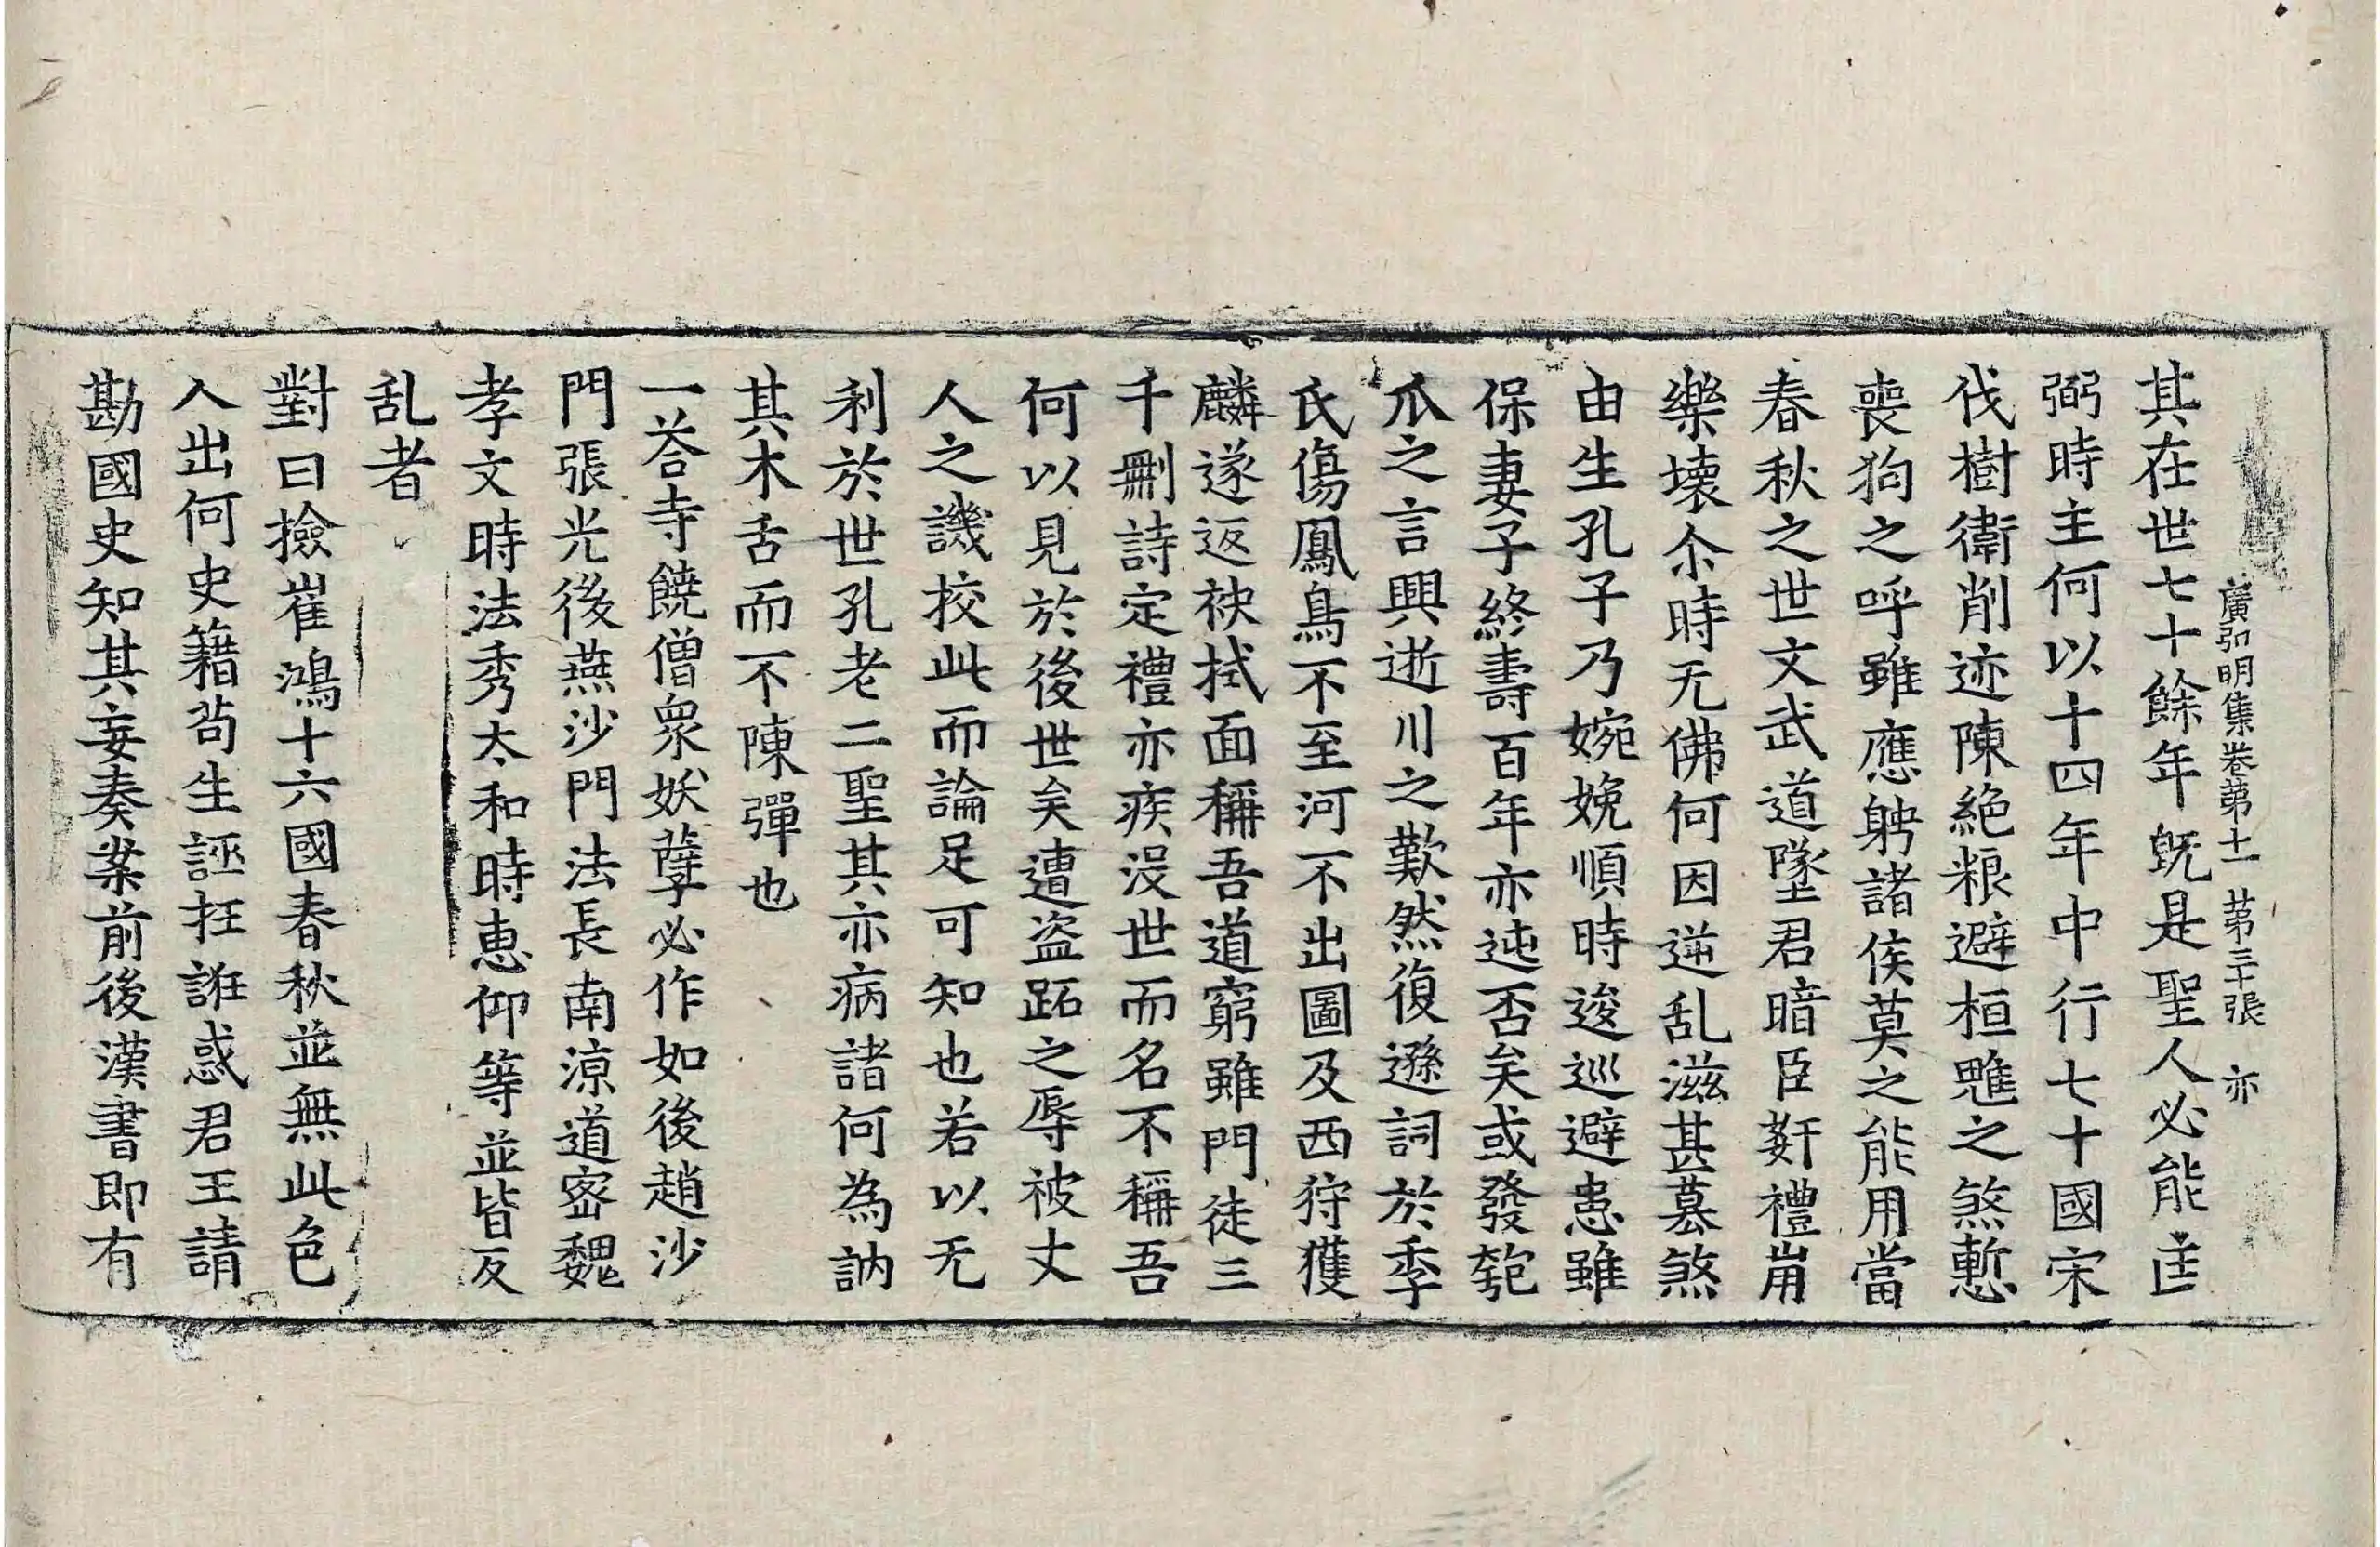 廣弘明集卷第十一 第三十張 亦
其在世七十餘年旣是聖人必能匡
弼時主何以十四年中行七十國宋
伐樹衛削迹陳絶粮避桓魋之煞慙
喪狗之呼雖應躬諸侯莫之能用當
春秋之世文武道墜君暗臣姧禮崩
樂壞尒時无佛何因逆乱滋甚篡煞
由生孔子乃婉娩順時逡巡避患雖
保妻子終壽百年亦迍否矣或發匏
爪之言興逝川之歎然復遜詞於季
氏傷鳳鳥不至河不出圖及西狩獲
麟遂返袂拭面稱吾道窮雖門徒三
千刪詩定禮亦疾没世而名不稱吾
何以見於後世矣遭盜跖之辱被丈
人之譏挍此而論足可知也若以无
利於世孔老二聖其亦病諸何為訥
其木舌而不陳彈也
一荅寺饒僧衆妖孽必作如後趙沙
門張光後燕沙門法長南涼道密魏
孝文時法秀太和時惠仰等並皆反
乱者
對曰撿崔鴻十六國春秋並無此色
人出何史籍苟生誣抂誑惑君王請
勘國史知其妄奏案前後漢書即有